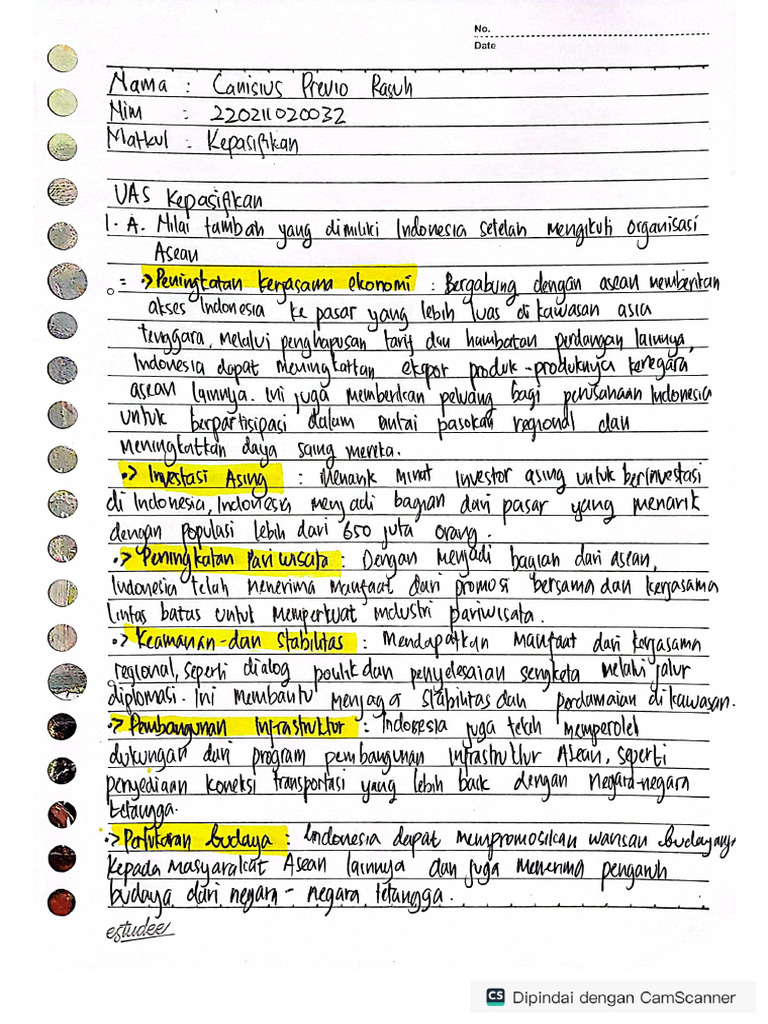 No.
Date
Nama : Canisius Previo Rasuh
Nim : 220211020032
Matkul : Kepasifikan
UAS Kepasifikan
1. A. Nilai tambah yang dimiliki Indonesia setelah mengikuti organisasi
Asean
= -> Peningkatan kerjasama ekonomi : Bergabung dengan asean memberikan
akses Indonesia ke pasar yang lebih luas di kawasan asia
tenggara, melalui penghapusan tarif dan hambatan perdangan lainnya,
Indonesia dapat meningkatkan ekspor produk-produknya kenegara
asean lainnya. Ini juga memberikan peluang bagi perusahaan Indonesia
untuk berpartisipasi dalam rantai pasokan regional dan
meningkatkan daya saing mereka.
-> Investasi Asing : Menarik minat investor asing untuk berinvestasi
di Indonesia, Indonesia menjadi bagian dari pasar yang menarik
dengan populasi lebih dari 650 juta orang.
-> Peningkatan Pariwisata : Dengan menjadi bagian dari asean,
Indonesia telah menerima manfaat dari promosi bersama dan kerjasama
lintas batas untuk memperkuat industri pariwisata.
-> Keamanan dan Stabilitas : Mendapatkan manfaat dari kerjasama
regional, seperti dialog politik dan penyelesaian sengketa melalui jalur
diplomasi. Ini membantu menjaga stabilitas dan perdamaian di kawasan.
-> Pembangunan Infrastruktur : Indonesia juga telah memperoleh
dukungan dari program pembangunan infrastruktur Asean, seperti
penyediaan koneksi transportasi yang lebih baik dengan negara-negara
tetangga.
-> Pertukaran budaya : Indonesia dapat mempromosikan warisan budayanya
kepada masyarakat Asean lainnya dan juga menerima pengaruh
budaya dari negara - negara tetangga.
estudee
CS Dipindai dengan CamScanner